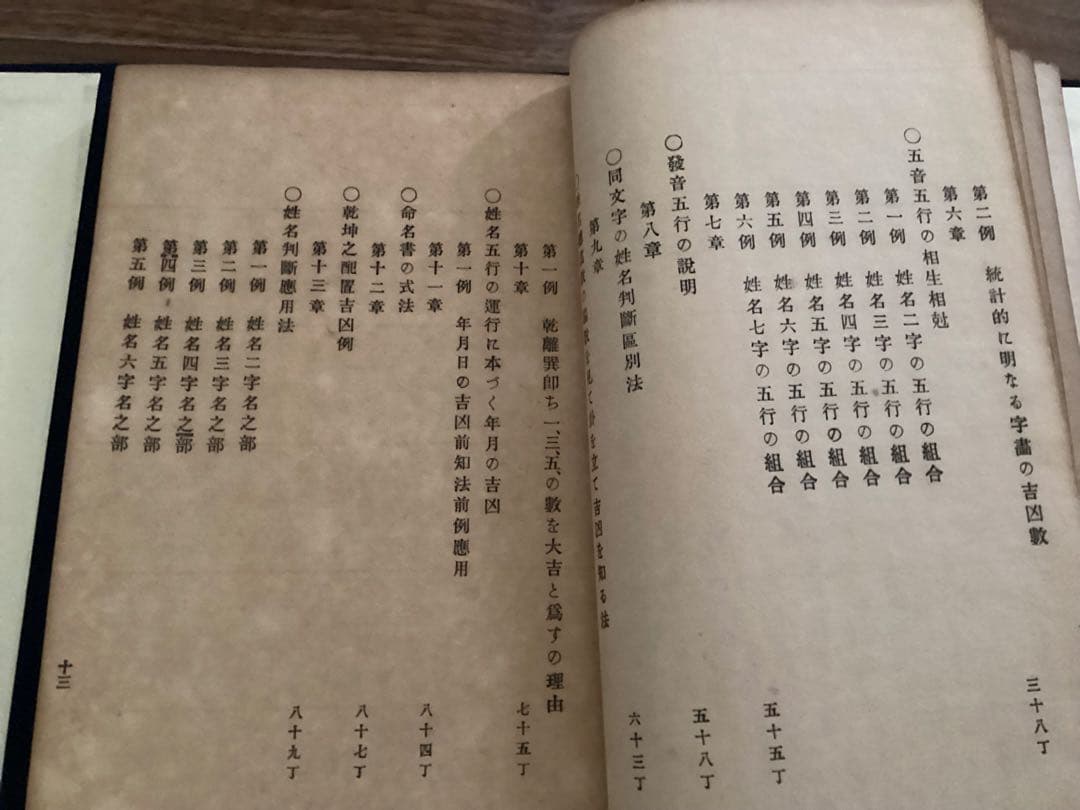 第二例　統計的に明なる字畫の吉凶數
三十八丁
第六章
〇五音五行の相生相尅
第一例　姓名二字の五行の組合
第二例　姓名三字の五行の組合
第三例　姓名四字の五行の組合
第四例　姓名五字の五行の組合
第五例　姓名六字の五行の組合
第六例　姓名七字の五行の組合
五十五丁
第七章
〇發音五行の説明
五十八丁
第八章
〇同文字の姓名判斷區別法
六十三丁
第九章
て卦を立て吉凶を知る法
第一例　乾離巽卽ち一、三、五、の數を大吉と爲すの理由
第十章
七十五丁
〇姓名五行の運行に本づく年月の吉凶
第一例　年月日の吉凶前知法前例應用
第十一章
〇命名書の式法
八十四丁
第十二章
〇乾坤之配置吉凶例
八十七丁
第十三章
〇姓名判斷應用法
八十九丁
第一例　姓名二字名之部
第二例　姓名三字名之部
第三例　姓名四字名之部
第四例　姓名五字名之部
第五例　姓名六字名之部
十三